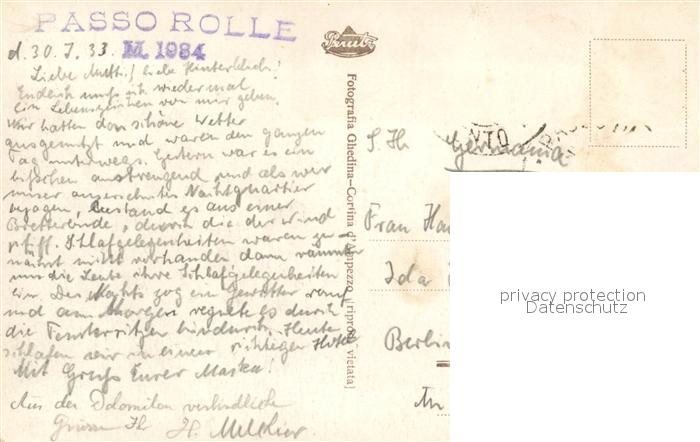 PASSO ROLLE
M. 1984
d. 30.7.33.
Liebe Mutti, liebe Hinterbliebene!
Endlich muß ich wieder mal
ein Lebenszeichen von mir geben.
Wir hatten das schöne Wetter
ausgenutzt und waren den ganzen
Tag unterwegs. Gestern war es ein
bißchen anstrengend und als wir
unser Nachtquartier
bezogen, bestand es aus einer
Bretterbude, durch die der Wind
pfiff. Schlafgelegenheiten waren
nicht vorhanden dann räumten
uns die Leute ihre Schlafgelegenheiten
ein. Des Nachts zog ein Gewitter rauf
und am Morgen regnete es durch
die Fensterritzen hindurch. Heute
schlafen wir in einem richtigen Hotel
Mit Gruß Eurer Maska!
Aus den Dolomiten verbindliche
Grüsse Ihr H. Melchior.
Fotografia Ghedina-Cortina d'Ampezzo (riprod. vietata)
Germania
Frau
Ida
Berlin
privacy protection
Datenschutz